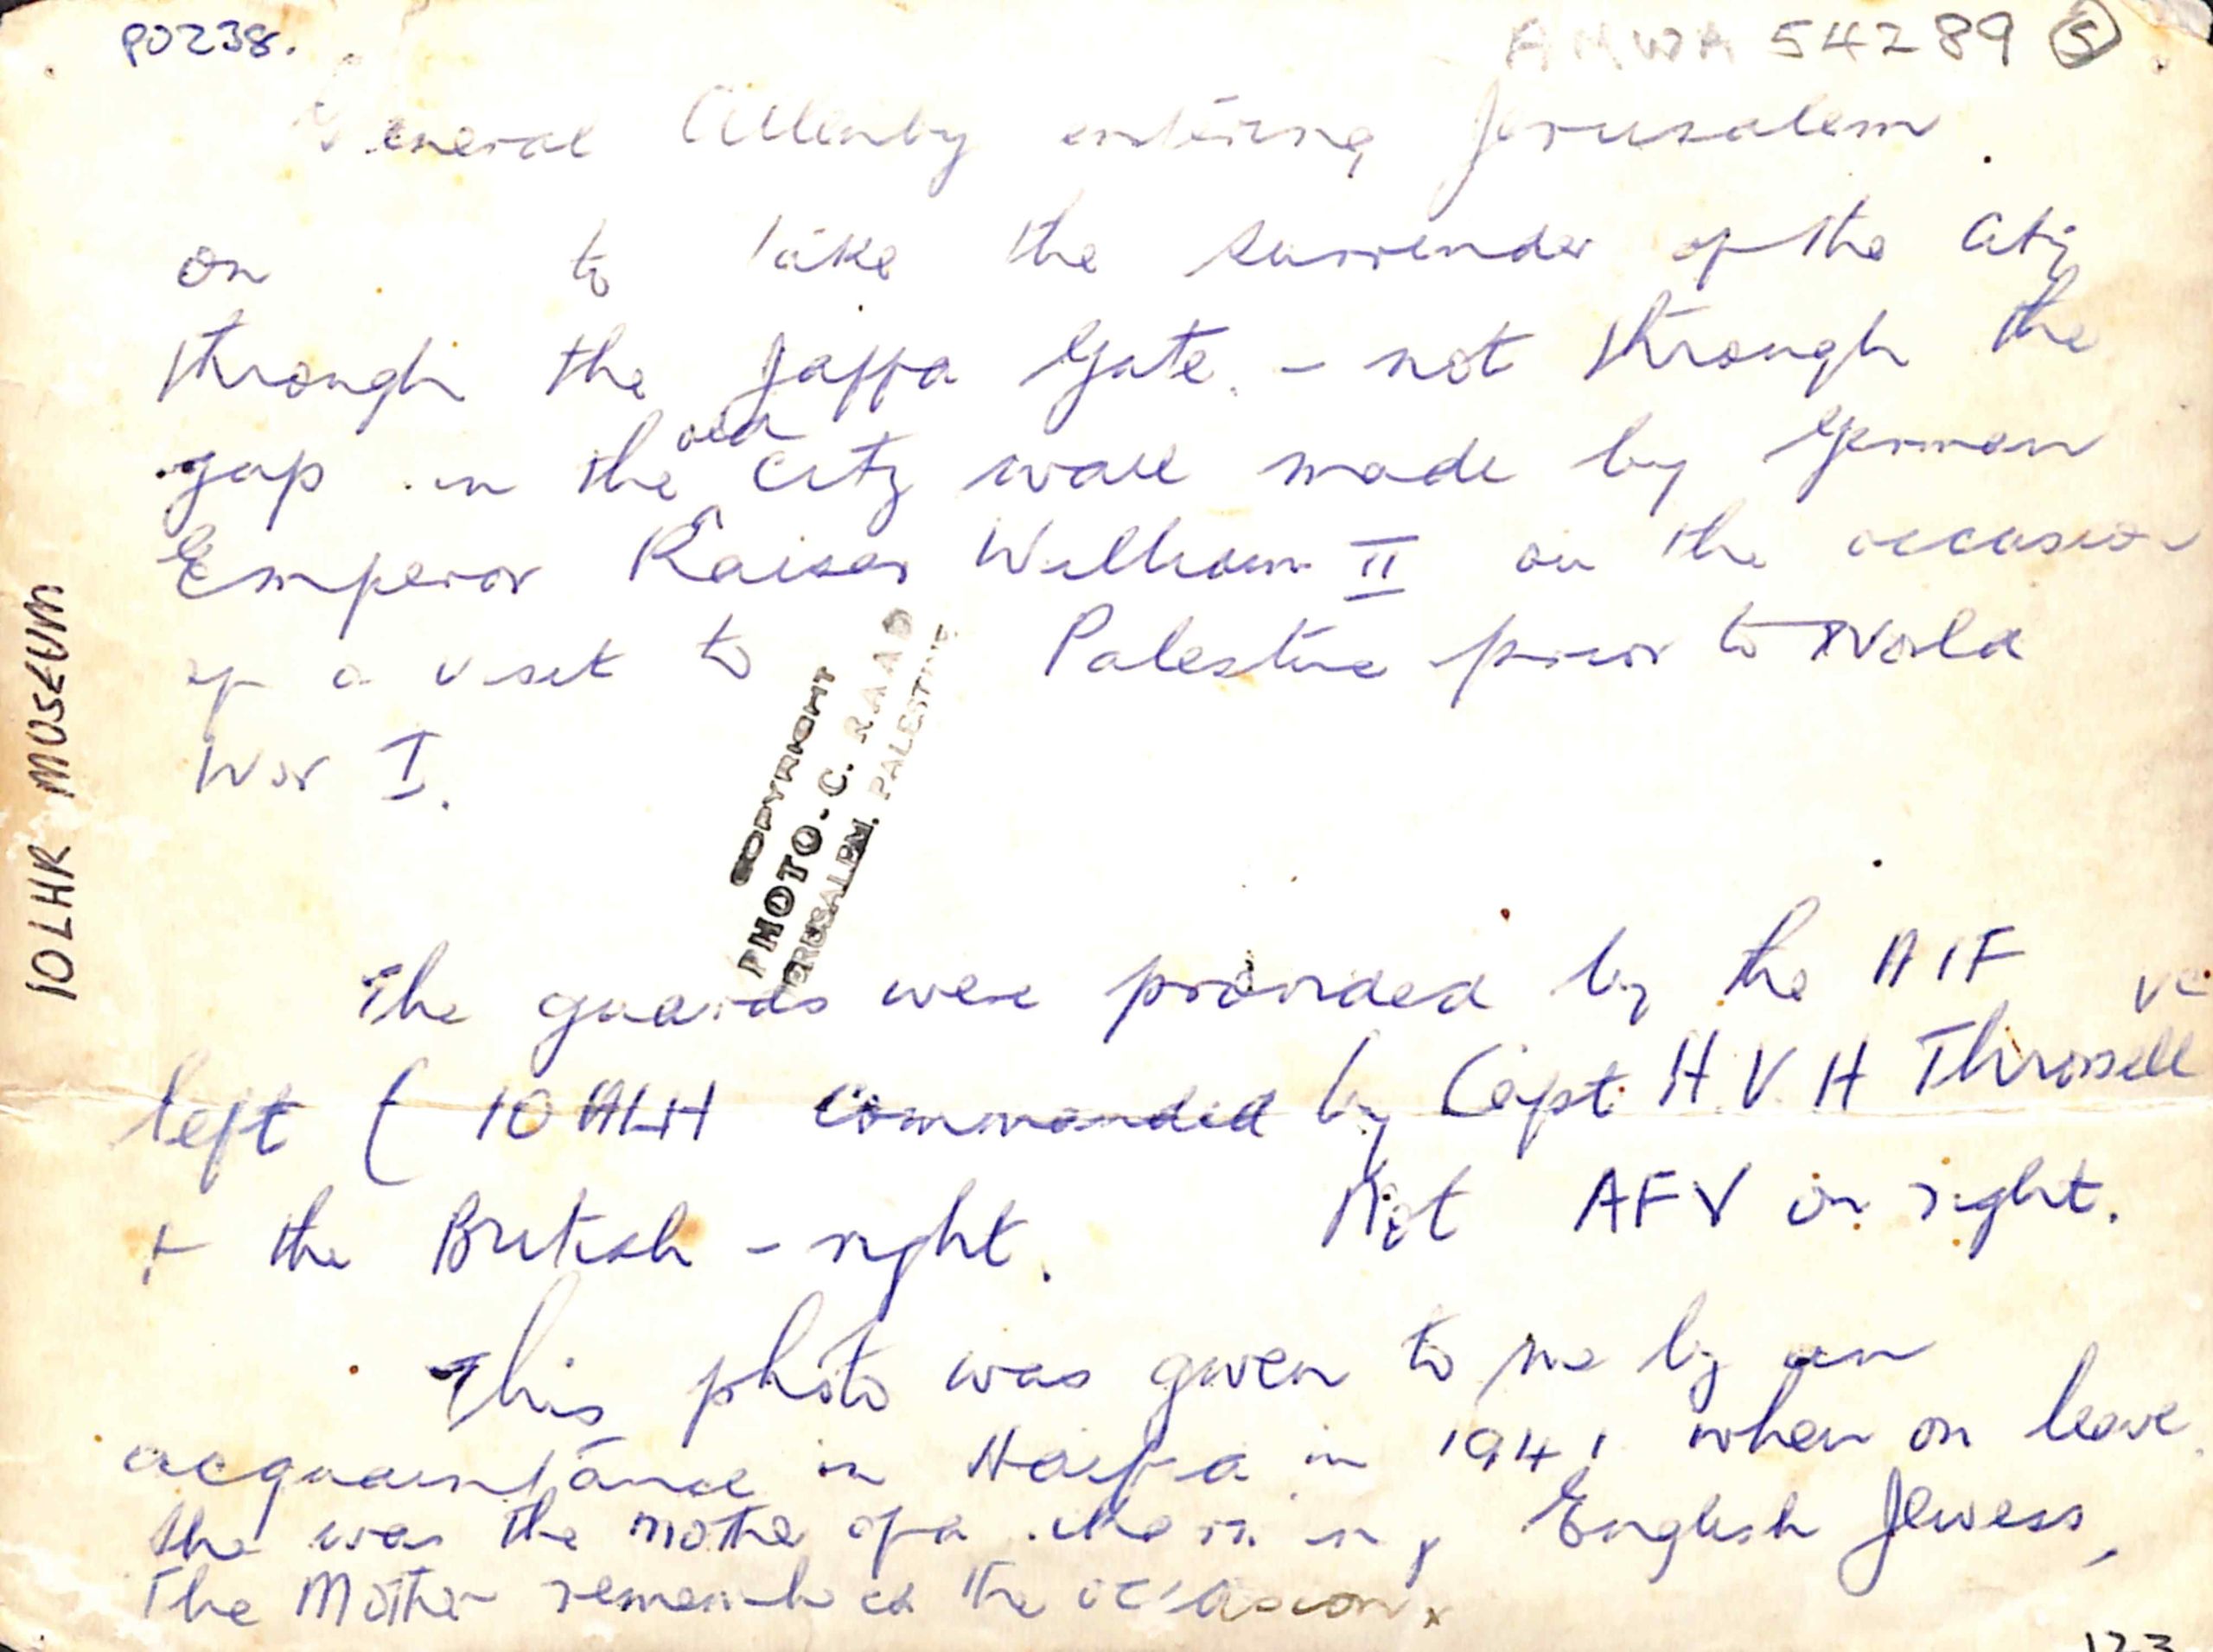 P0238.
AMWA 54289 (5)
General Allenby entering Jerusalem
on to take the surrender of the City
through the Jaffa Gate. - not through the
gap in the old City wall made by German
Emperor Kaiser Wilhelm II on the occasion
of a visit to Palestine prior to World
War I.
COPYRIGHT
PHOTO-C. RAAD
JERUSALEM. PALESTINE
10LHR MUSEUM
The guards were provided by the AIF VC
left ( 10 ALH commanded by Capt H.V.H Throssell
+ the British - right. Not AFV on right.
This photo was given to me by an
acquaintance in Haifa in 1941 when on leave.
She was the mother of a English Jewess,
The Mother remembered the occasion
123